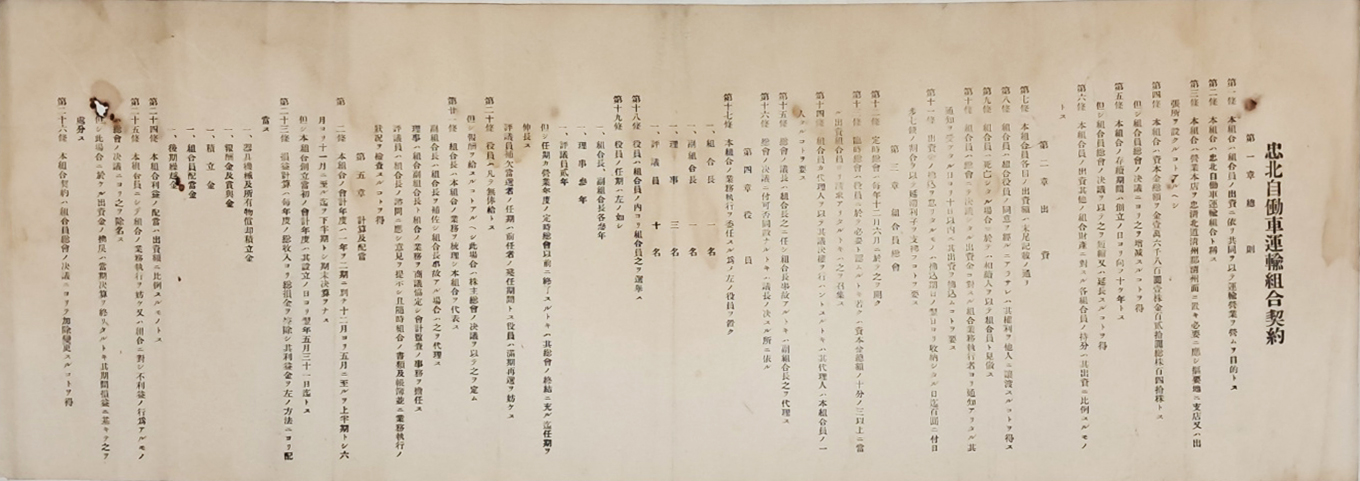 忠北自働車運輸組合契約
第一章 總則
第一條 本組合ハ組合員ノ出資ニ依リ共同ヲ以テ運輸營業ヲ營ムヲ目的トス
第二條 本組合ハ忠北自働車運輸組合ト稱ス
第三條 本組合ハ營業本店ヲ忠淸北道淸州郡淸州面ニ置キ必要ニ應シ樞要地ニ支店又ハ出
張所ヲ設クルコトアルヘシ
第四條 本組合ハ資本金總額ヲ金壹萬六千八百圓壹株金百貳拾圓總株百四拾株トス
但シ組合員總會ノ決議ニヨリ之ヲ增減スルコトヲ得
第五條 本組合ノ存續期間ハ創立ノ日ヨリ向フ十ケ年トス
但シ組合員總會ノ決議ヲ以テ之ヲ短縮又ハ延長スルコトヲ得
第六條 本組合員ノ出資其他ノ組合財產ニ對スル各組合員ノ持分ハ其出資ニ比例スルモノ
トス
第二章 出資
第七條 本組合員各自ノ出資額ハ末尾記載ノ通リ
第八條 本組合員ハ組合役員ノ同意ヲ經ルニアラサレハ其權利ヲ他人ニ讓渡スルコトヲ得ス
第九條 組合員ノ死亡シタル場合ニ於テハ相續人ヲ以テ組合員ト見做ス
第十條 組合員ハ總會ニテ決議シタル出資金ニ對スル組合業務執行者ヨリ通知アリタル其
通知ヲ受ケタル日ヨリ十日以內ニ其出資ヲ拂込ムコトヲ要ス
第十一條 出資金ノ拂込ヲ怠リタルモノハ拂込期日ノ翌日ヨリ收納シタル日迄百圓ニ付日
步七錢ノ割合ヲ以テ遲滯利子ヲ支拂フコトヲ要ス
第三章 組合員總會
第十二條 定時總會ハ每年十二月六月ニ於テ之ヲ開ク
第十三條 臨時總會ハ役員ニ於テ必要ト認ムルトキ若クハ資本金總額ノ十分ノ三以上ニ當
ル出資組合員ヨリ請求アリタルトキハ之ヲ召集ス
第十四條 組合員カ代理人ヲ以テ其議決權ヲ行ハントスルトキハ其代理人ハ本組合員ノ一
人タルコトヲ要ス
第十五條 總會ノ議長ハ組合長之ニ任シ組合長事故アルトキハ副組合長之ヲ代理ス
第十六條 總會ノ決議ニ付可否同數ナルトキハ議長ノ決スル所ニ依ル
第四章 役員
第十七條 本組合ノ業務執行ヲ委任スル爲メ左ノ役員ヲ置ク
一、組合長 一名
一、副組合長 一名
一、理事 三名
一、評議員 十名
第十八條 役員ハ組合員ノ內ヨリ組合員之ヲ選擧ス
第十九條 役員ノ任期ハ左ノ如シ
一、組合長、副組合長各參年
一、理事參年
一、評議員貳年
但シ任期カ營業年度ノ定時總會以前ニ終了スルトキハ其總會ノ終結ニ至ル迄任期ヲ
伸長ス
評議員補欠當選者ノ任期ハ前任者ノ殘任期間トス役員ハ滿期再選ヲ妨ケス
第二十條 役員ハ凡テ無俸給トス
但シ報酬ヲ給スルコトアルヘシ此場合ハ株主總會ノ決議ヲ以テ之ヲ定ム
第廿一條 組合長ハ本組合ノ業務ヲ統理シ本組合ヲ代表ス
副組合長ハ組合長ヲ補佐シ組合長事故アル場合ハ之ヲ代理ス
理事ハ組合長副組合長ト組合ノ業務ヲ商議協定シ會計監查ノ事務ヲ擔任ス
評議員ハ組合長ノ諮問ニ應シ意見ヲ提示シ且隨時組合ノ書類及帳簿並ニ業務執行ノ
狀況ヲ檢査スルコトヲ得
第五章 計算及配當
第 二條 本組合ノ會計年度ハ一年ヲ二期ニ別チ十二月ヨリ五月ニ至ルヲ上半期トシ六
月ヨリ十一月ニ至ル迄ヲ下半期トシ期末決算ヲナス
但シ本組合創立當初ノ會計年度ハ其設立ノ日ヨリ翌年五月三十一日迄トス
第二十三條 損益計算ハ每年度ノ總收入ヨリ總損金ヲ控除シ其利益金ヲ左ノ方法ニヨリ配
當ス
一、器具機械及所有物價却積立金
一、報酬金及賞與金
一、積立金
一、組合員配當金
一、後期繰越金
第二十四條 本組合利益ノ配當ハ出資額ニ比例スルモノトス
第二十五條 本組合員ニシテ組合ノ業務執行ヲ妨ケ又ハ組合ニ對シ不利益ノ行爲アルモノ
總會ノ決議ニヨリ之ヲ除名ス
但シ此場合ニ於テル出資金ノ拂戾ハ當期決算ヲ終リタルトキ其期間損益ニ基キ之ヲ
處分ス
第二十六條 本組合契約ハ組合員總會ノ決議ニヨリ之ヲ加除變更スルコトヲ得